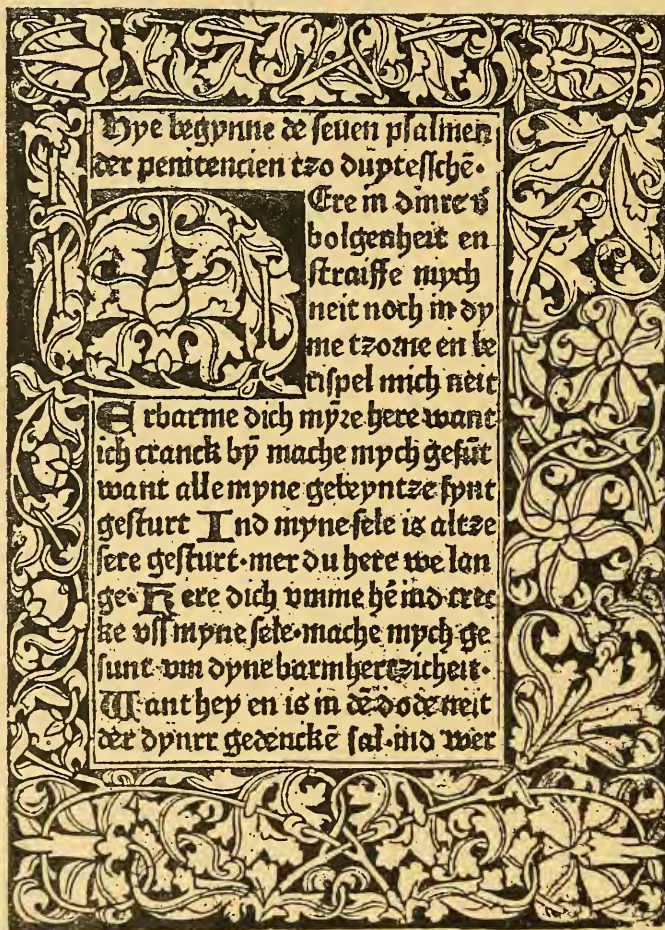 Hye begynne de seuen psalmen
der penitencien tzo duytesschē.
Ere in dinre v̄
bolgenheit en
straiffe mych
neit noch in dy
me tzorne en be
rispel mich neit
Erbarme dich myre here want
ich cranck bȳ mache mych gesūt
want alle myne gebeyntze synt
gesturt Ind myne sele is altze
sere gesturt. mer du here we lan
ge. Kere dich vmme hē ind trec
ke vss myne sele. mache mych ge
sunt vm dyne barmhertzicheit.
Want hey en is in dē dode neit
der dynrr gedenckē sal. ind wer